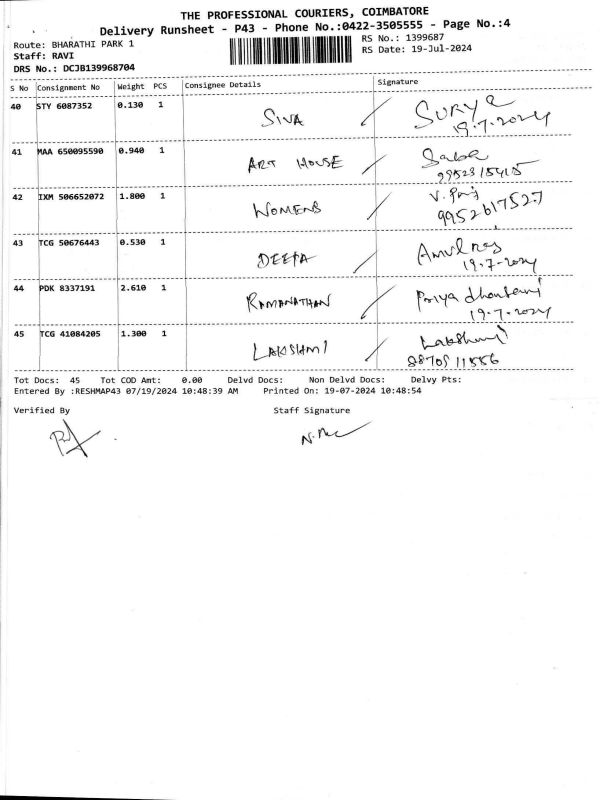 THE PROFESSIONAL COURIERS, COIMBATORE
Delivery Runsheet - P43 - Phone No.:0422-3505555 - Page No.:4
Route: BHARATHI PARK 1
RS No.: 1399687
Staff: RAVI
RS Date: 19-Jul-2024
DRS No.: DCJB139968704
S No Consignment No Weight PCS Consignee Details Signature
40 STY 6087352 0.130 1 SIVA SURYA
19.7.2024
41 MAA 650095590 0.940 1 ART HOUSE
42 IXM 506652072 1.800 1 WOMENS
9952617527
43 TCG 50676443 0.530 1 DEEPA
19.7-2024
44 PDK 8337191 2.610 1 RAMANATHAN Priya
19.7-2024
45 TCG 41084205 1.300 1 LAKSHMI Lakshmi
Tot Docs: 45 Tot COD Amt: 0.00 Delvd Docs: Non Delvd Docs: Delvy Pts:
Entered By :RESHMAP43 07/19/2024 10:48:39 AM Printed On: 19-07-2024 10:48:54
Verified By Staff Signature